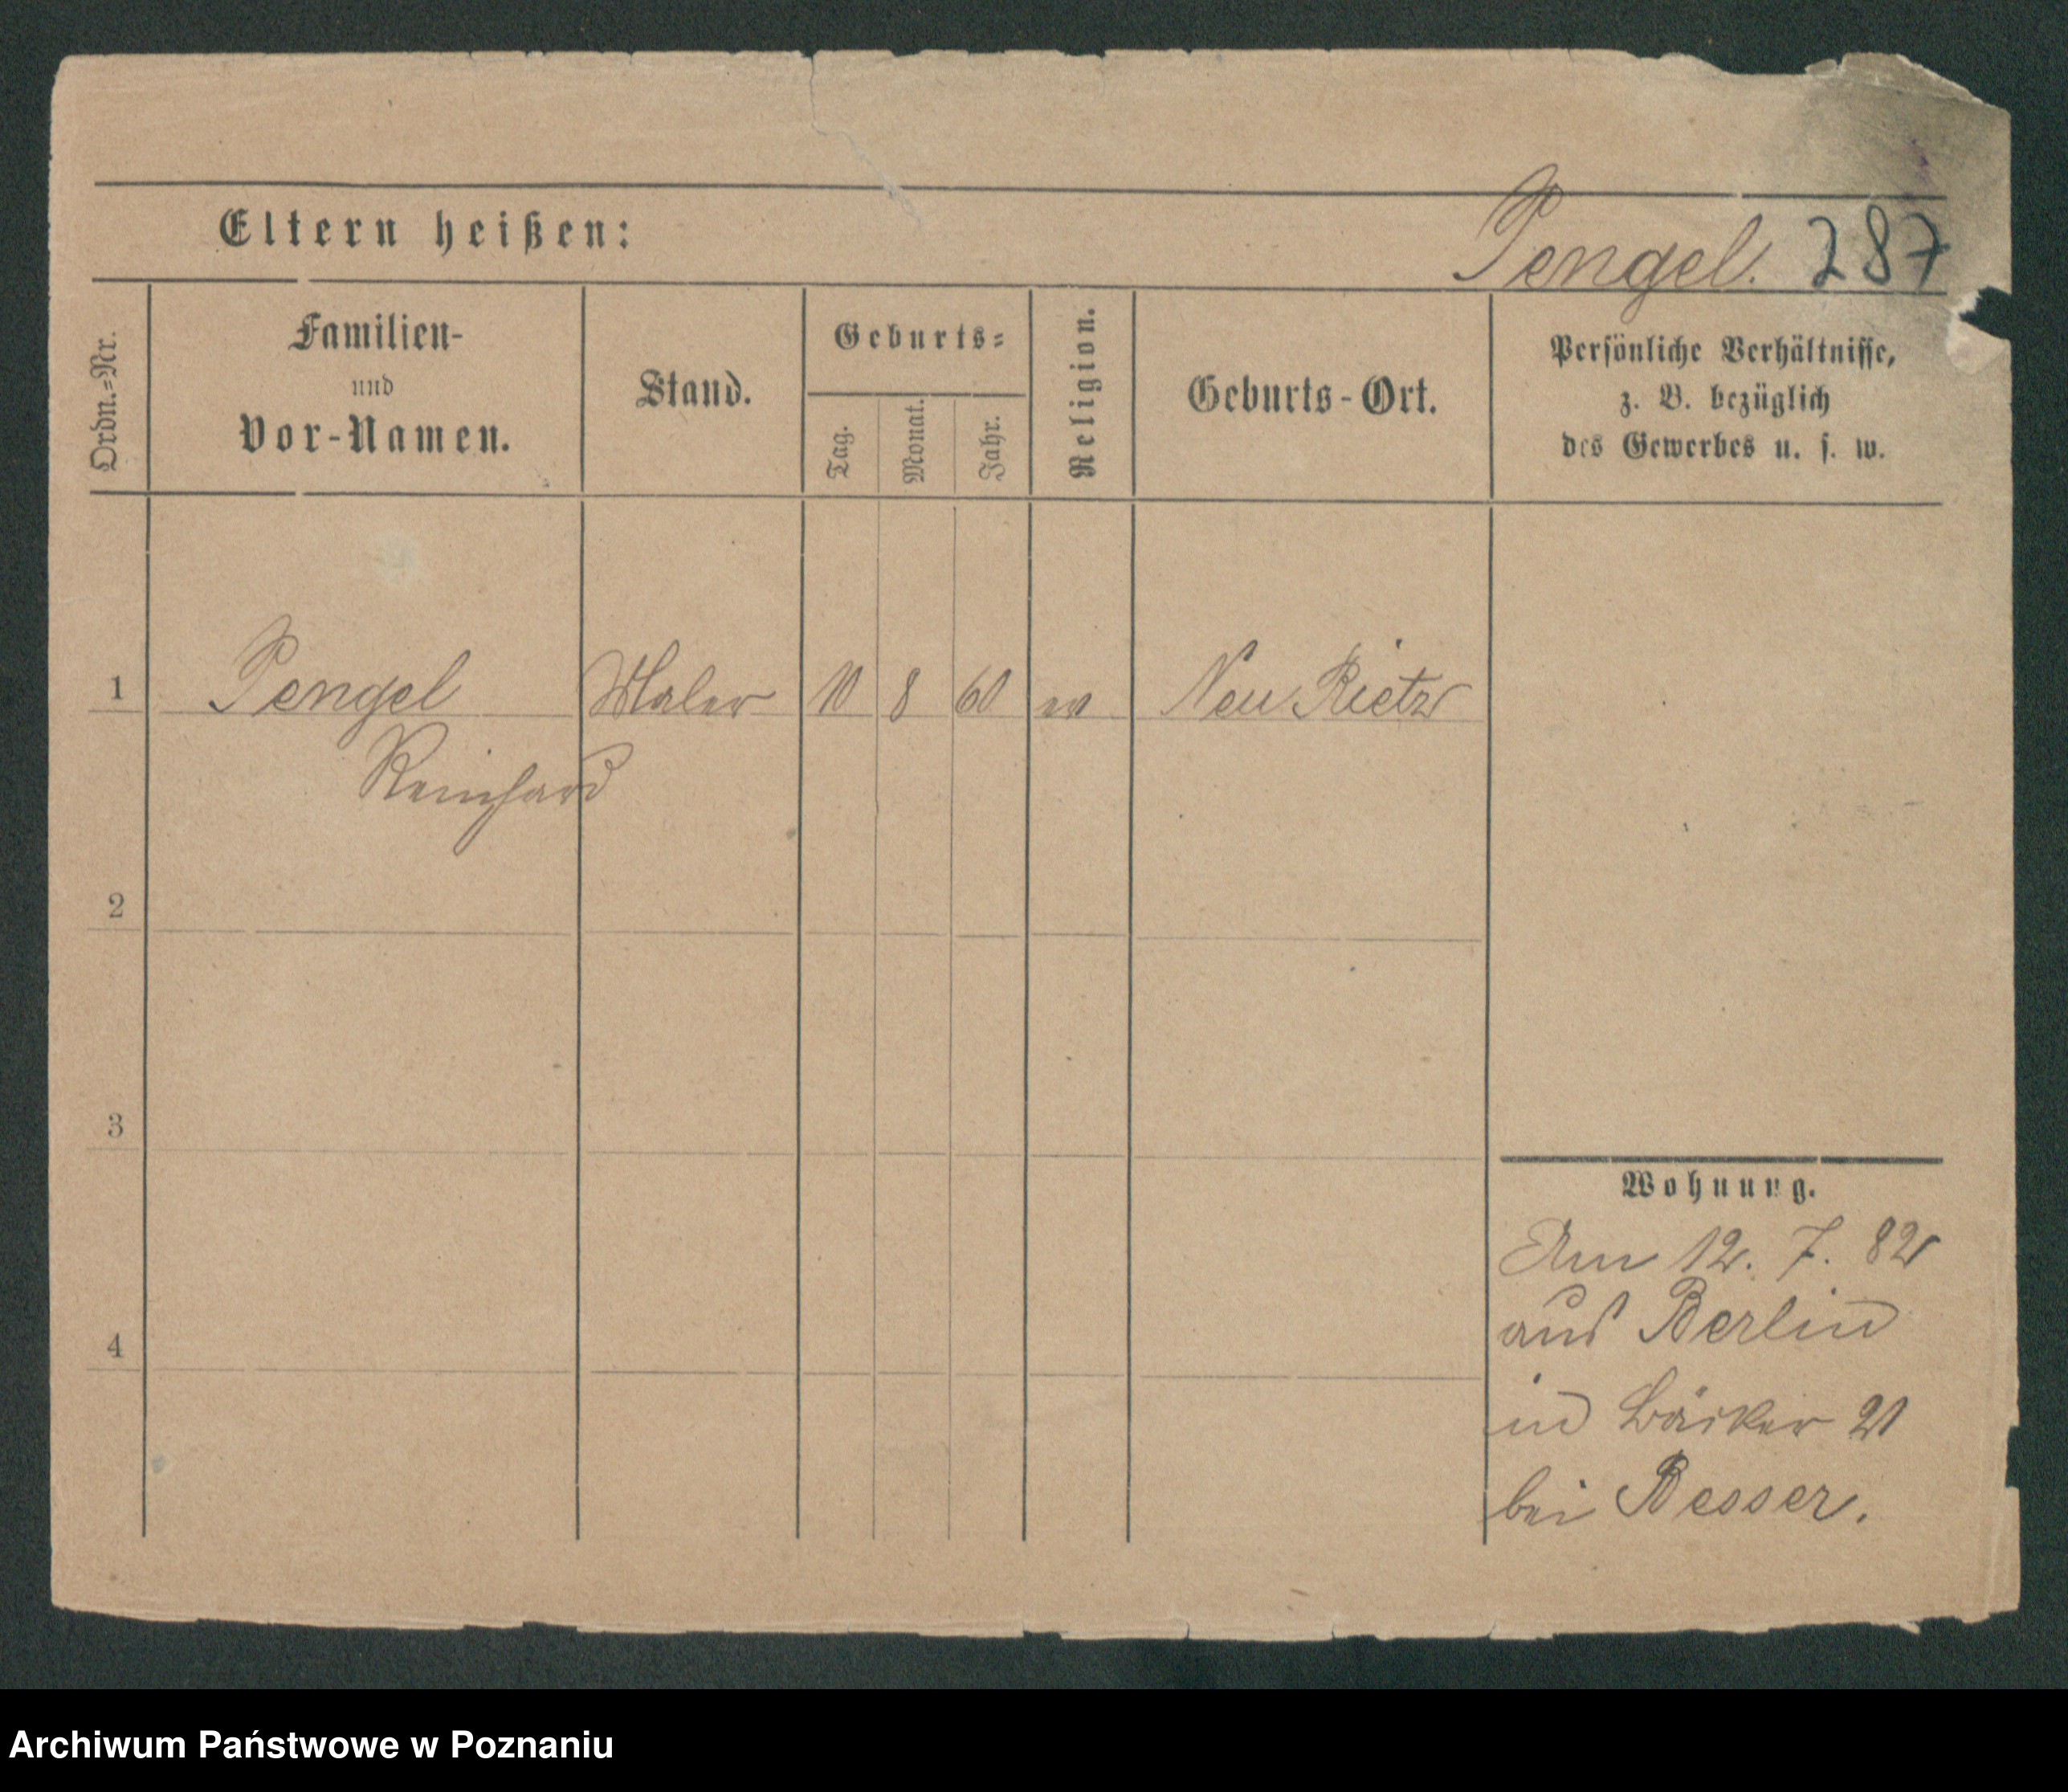 Eltern heißen:
Pengel. 287
Ordn.=Nr.
Familien-
und
Vor-Namen.
Stand.
Geburts=
Tag.
Monat.
Jahr.
Religion.
Geburts-Ort.
Persönliche Verhältnisse,
z. B. bezüglich
des Gewerbes u. s. w.
1 Pengel Maler 10 8 60 ev Neu Rietz
Reinhard
2
3
4
Wohnung.
Am 12. 7. 82
aus Berlin
in Bäcker 21
bei Besser.
Archiwum Państwowe w Poznaniu